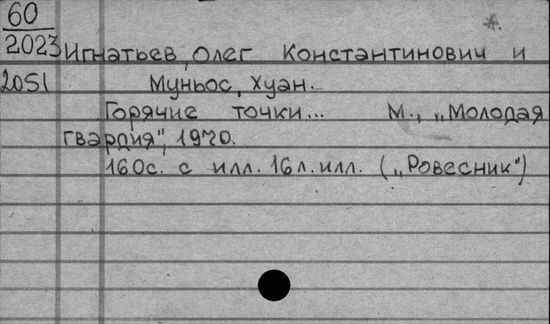 60
2023 Игнатьев, Олег Константинович и
2051 Муньос, Хуан.
Горячие точки... М., „Молодая
гвардия", 1970.
160с. с илл. 16л. илл. („Ровесник")